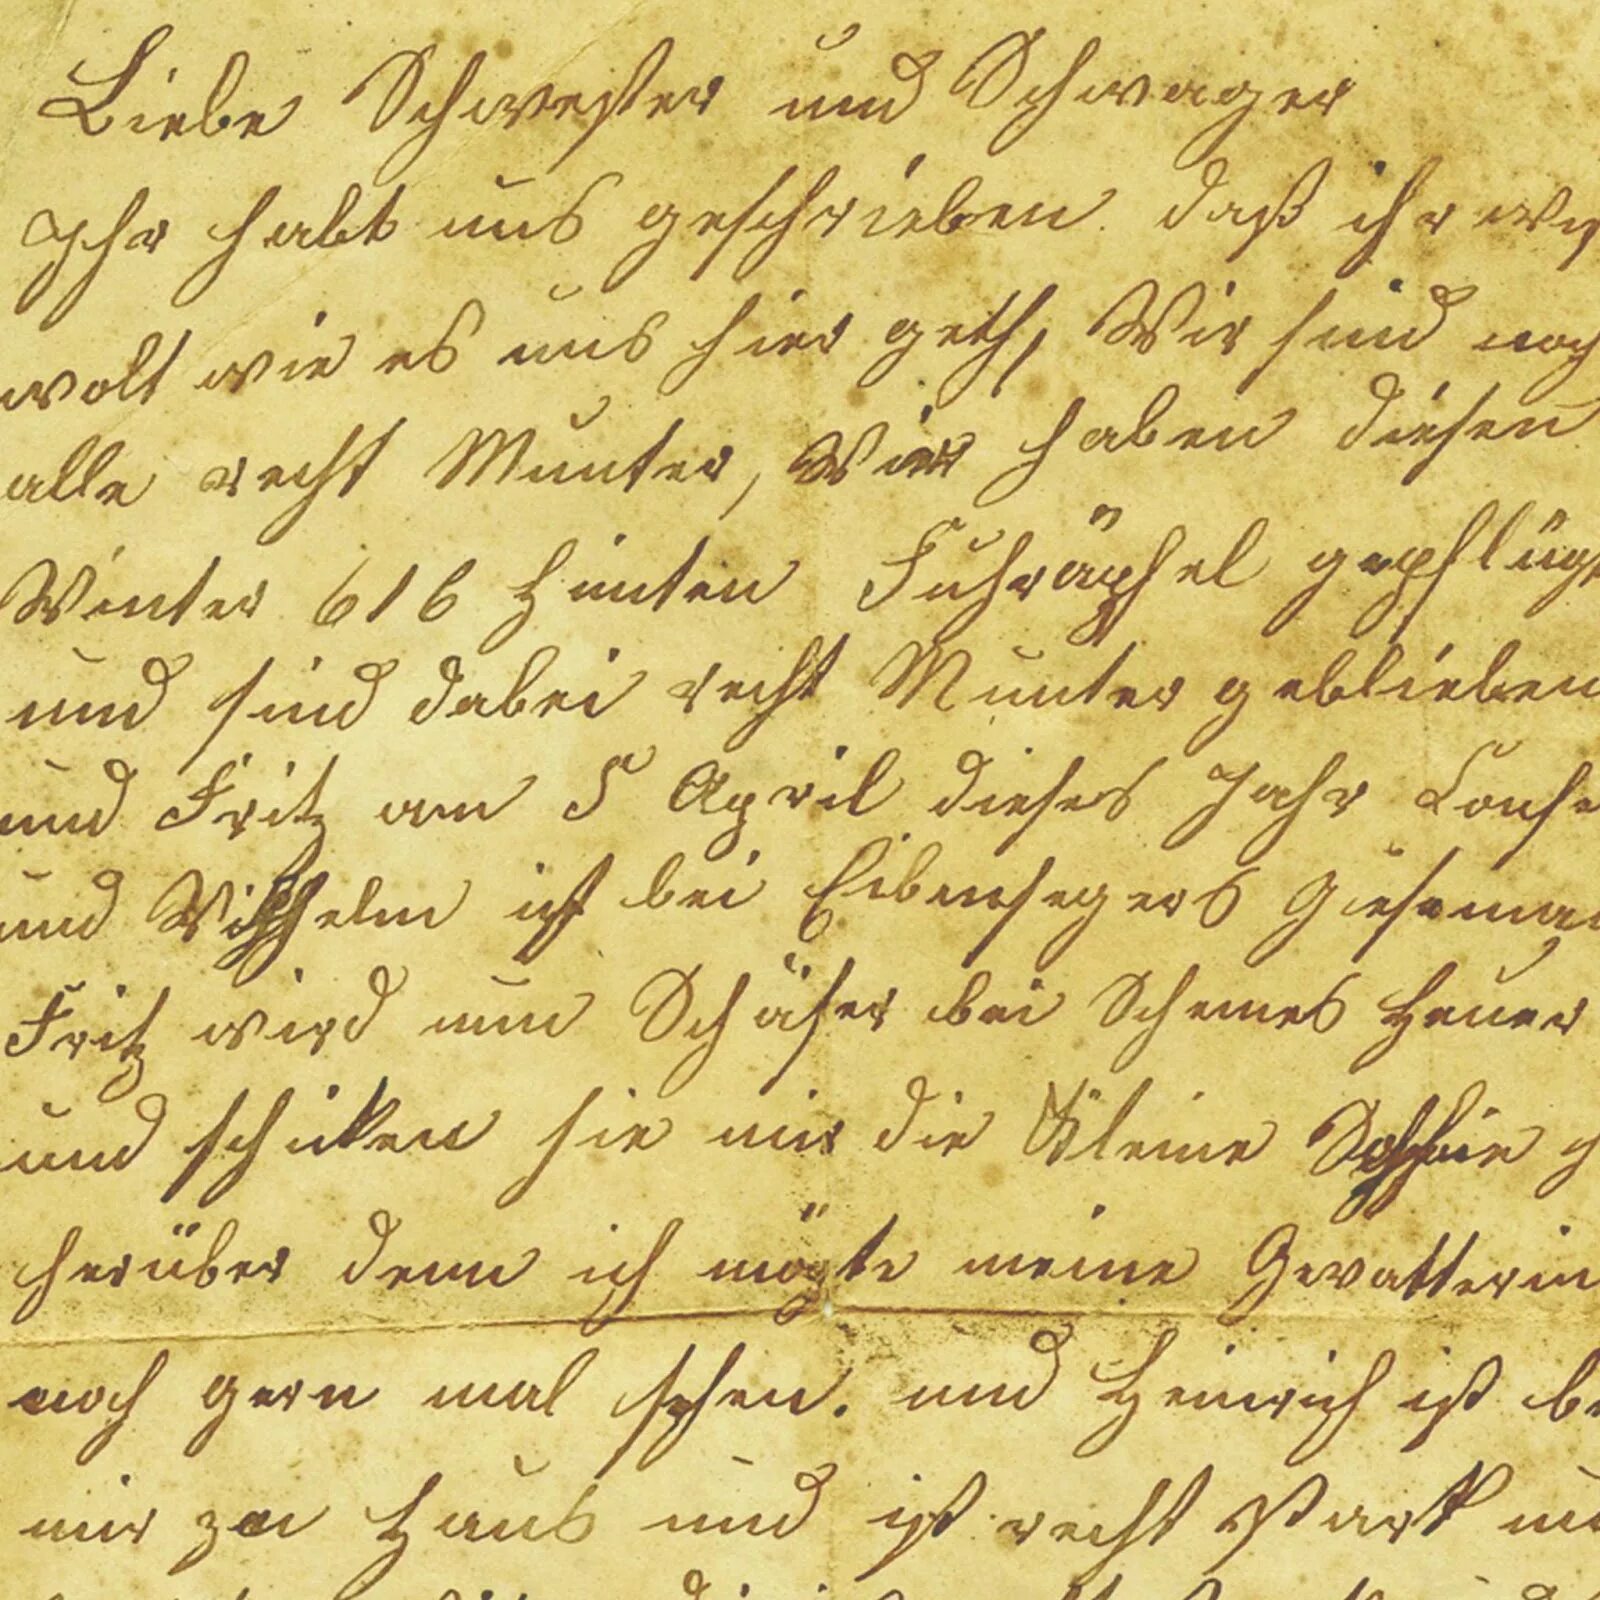 Liebe Schwester und Schwager
Ihr habt uns geschrieben. daß ihr
wolt wie es uns hier geth, Wir sind noch
alle recht Munter, Wir haben diesen
Winter 616 Himten gepflügt
und sind dabei recht Munter geblieben
und Fritz am 5 April dieses Jahr Confe
und Wilhelm ist bei
Fritz wird nun Schäfer bei Heuer
und schicken sie mir die Kleine Sophie g
herüber denn ich mögte meine Gevatterin
noch gern mal sehen. und Heinrich ist be
mir zu Haus und ist recht Stark un